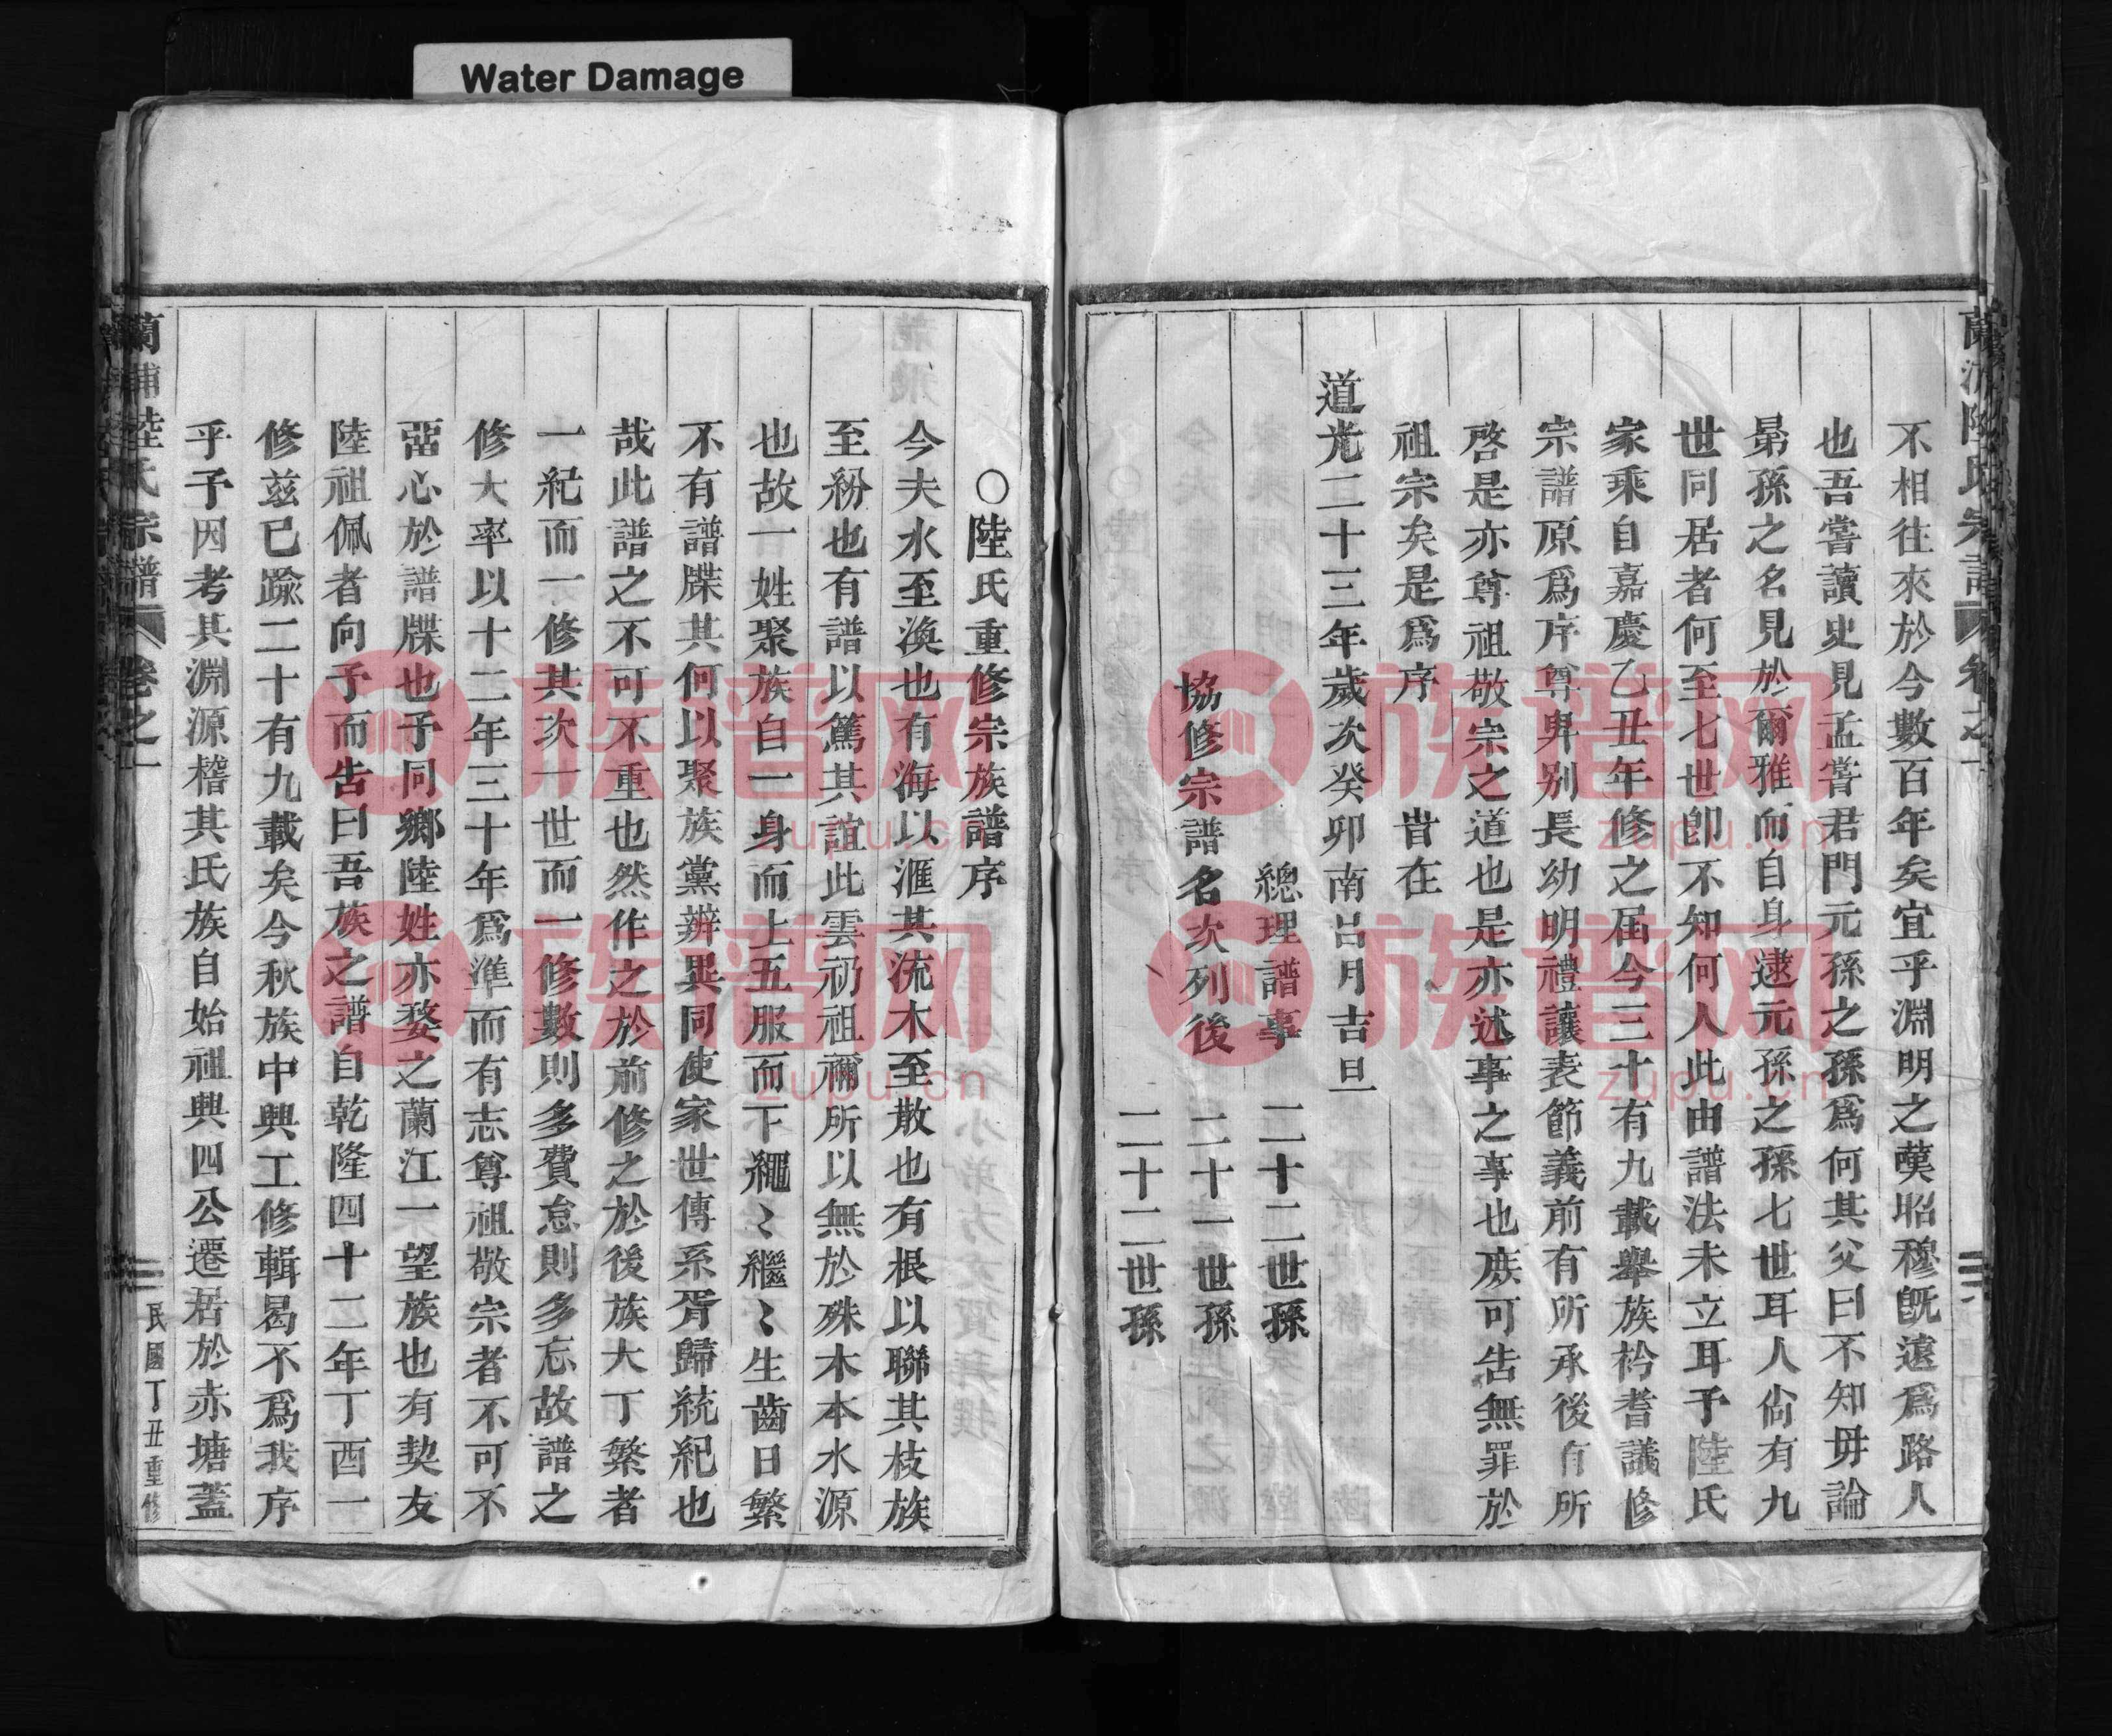 Water Damage
不相往來於今數百年矣宜乎淵明之嘆昭穆旣遠爲路人
也吾嘗讀史見孟嘗君門元孫之孫爲何其父曰不知毋論
晜孫之名見於爾雅而自身逮元孫之孫七世耳人尙有九
世同居者何至七世卽不知何人此由譜法未立耳予陸氏
家乘自嘉慶乙丑年修之屆今三十有九載舉族衿耆議修
宗譜原爲序尊卑别長幼明禮讓表節義前有所承後有所
啓是亦尊祖敬宗之道也是亦述事之事也庶可告無罪於
祖宗矣是爲序　旹在
道光二十三年歲次癸卯南呂月吉旦
總理譜事　二十二世孫
協修宗譜名次列後　二十一世孫
二十二世孫
○陸氏重修宗族譜序
今夫水至渙也有海以滙其流木至散也有根以聯其枝族
至紛也有譜以篤其誼此雲礽祖禰所以無於殊木本水源
也故一姓聚族自一身而上五服而下繩〻繼〻生齒日繁
不有譜牒其何以聚族黨辨異同使家世傳系胥歸統紀也
哉此譜之不可不重也然作之於前修之於後族大丁繁者
一紀而一修其次一世而一修數則多費怠則多忘故譜之
修大率以十二年三十年爲準而有志尊祖敬宗者不可不
畱心於譜牒也予同鄉陸姓亦婺之蘭江一望族也有契友
陸祖佩者向予而告曰吾族之譜自乾隆四十二年丁酉一
修兹已踰二十有九載矣今秋族中興工修輯曷不爲我序
乎予因考其淵源稽其氏族自始祖興四公遷居於赤塘蓋
蘭浦陸氏宗譜　卷之一　民國丁丑重修